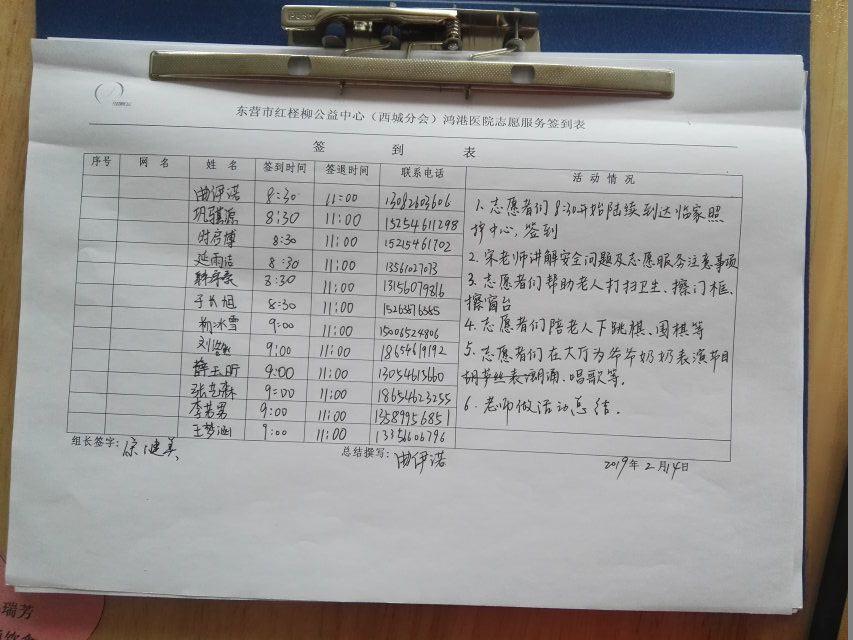 东营市红柽柳公益中心（西城分会）鸿港医院志愿服务签到表
签 到 表
序号 网 名 姓 名 签到时间 签退时间 联系电话 活 动 情 况
曲伊诺 8:30 11:00 13082603606
巩骐源 8:30 11:00 15254611298
时启博 8:30 11:00 15215461702
延雨洁 8:30 11:00 13561027073
8:30 11:00 13156079816
于长旭 8:30 11:00 15263876385
冰雪 9:00 11:00 15006524806
刘 9:00 11:00 18654619192
薛玉昕 9:00 11:00 13054615660
张 9:00 11:00 18654623255
李芳男 9:00 11:00 13589956851
王梦涵 9:00 11:00 13351606796
1. 志愿者们8:30开始陆续到达怡家照
护中心，签到
2. 宋老师讲解安全问题及志愿服务注意事项
3. 志愿者们帮助老人打扫卫生、擦门框、
擦窗台
4. 志愿者们陪老人下跳棋、围棋等
5. 志愿者们在大厅为爷爷奶奶表演节目
葫芦丝 朗诵、唱歌等。
6. 老师做活动总结。
组长签字： 健美 总结撰写：曲伊诺 2019年2月14日
瑞芳